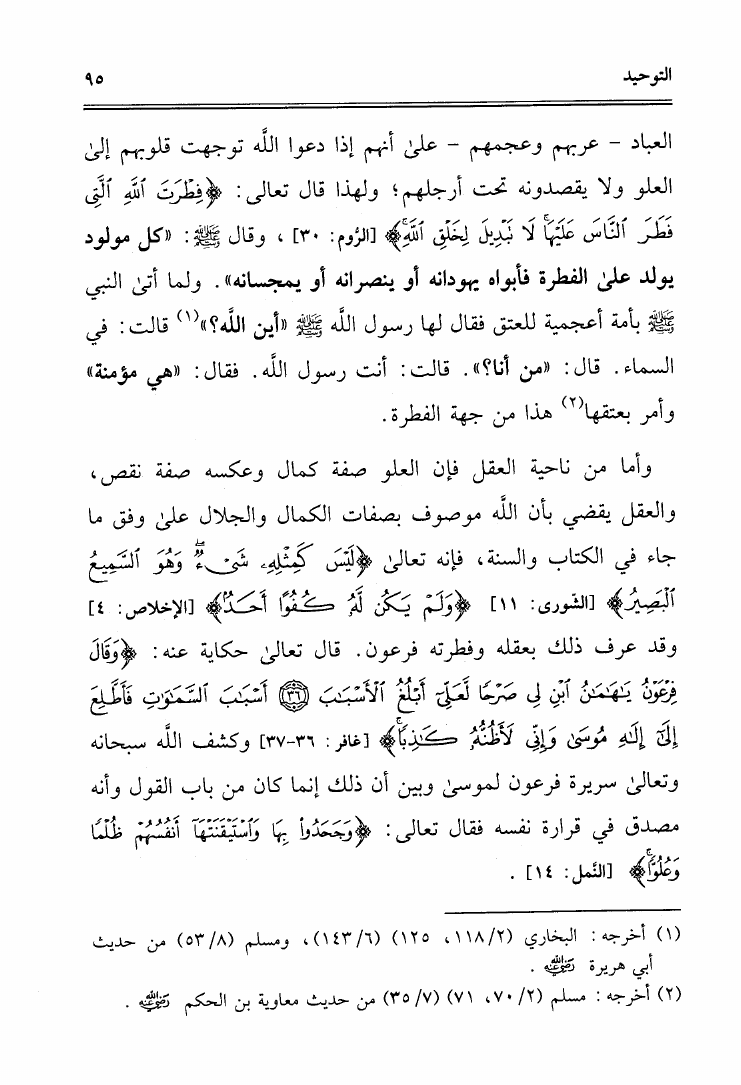 التوحيد ٩٥
العباد - عربهم وعجمهم - علىٰ أنهم إذا دعوا اللَّه توجهت قلوبهم إلىٰ
العلو ولا يقصدونه تحت أرجلهم؛ ولهذا قال تعالى: ﴿فِطْرَتَ ٱللَّهِ ٱلَّتِى
فَطَرَ ٱلنَّاسَ عَلَيْهَا ۚ لَا نَبْدِيلَ لِخَلْقِ ٱللَّهِ ۚ﴾ [الرُّوم: ٣٠] ، وقال ﷺ: «كل مولود
يولد علىٰ الفطرة فأبواه يهودانه أو ينصرانه أو يمجسانه». ولما أتىٰ النبي
ﷺ بأمة أعجمية للعتق فقال لها رسول اللَّه ﷺ «أين اللَّه؟»(١) قالت: في
السماء. قال: «من أنا؟». قالت: أنت رسول اللَّه. فقال: «هي مؤمنة»
وأمر بعتقها(٢) هذا من جهة الفطرة.
وأما من ناحية العقل فإن العلو صفة كمال وعكسه صفة نقص،
والعقل يقضي بأن اللَّه موصوف بصفات الكمال والجلال علىٰ وفق ما
جاء في الكتاب والسنة، فإنه تعالىٰ ﴿لَيْسَ كَمِثْلِهِۦ شَىْءٌ ۖ وَهُوَ ٱلسَّمِيعُ
ٱلْبَصِيرُ﴾ [الشّورى: ١١] ﴿وَلَمْ يَكُن لَّهُۥ كُفُوًا أَحَدٌۢ﴾ [الإخلاص: ٤]
وقد عرف ذلك بعقله وفطرته فرعون. قال تعالىٰ حكاية عنه: ﴿وَقَالَ
فِرْعَوْنُ يَٰهَٰمَٰنُ ٱبْنِ لِى صَرْحًا لَّعَلِّىٓ أَبْلُغُ ٱلْأَسْبَٰبَ ۝٣٦ أَسْبَٰبَ ٱلسَّمَٰوَٰتِ فَأَطَّلِعَ
إِلَىٰٓ إِلَٰهِ مُوسَىٰ وَإِنِّى لَأَظُنُّهُۥ كَٰذِبًا ۚ﴾ [غافر: ٣٦-٣٧] وكشف اللَّه سبحانه
وتعالىٰ سريرة فرعون لموسىٰ وبين أن ذلك إنما كان من باب القول وأنه
مصدق في قرارة نفسه فقال تعالى: ﴿وَجَحَدُوا۟ بِهَا وَٱسْتَيْقَنَتْهَآ أَنفُسُهُمْ ظُلْمًا
وَعُلُوًّا ۚ﴾ [النَّمل: ١٤] .
(١) أخرجه: البخاري (٢/ ١١٨، ١٢٥) (٦/ ١٤٣)، ومسلم (٨/ ٥٣) من حديث
أبي هريرة رضي الله عنه .
(٢) أخرجه: مسلم (٢/ ٧٠، ٧١) (٧/ ٣٥) من حديث معاوية بن الحكم رضي الله عنه .